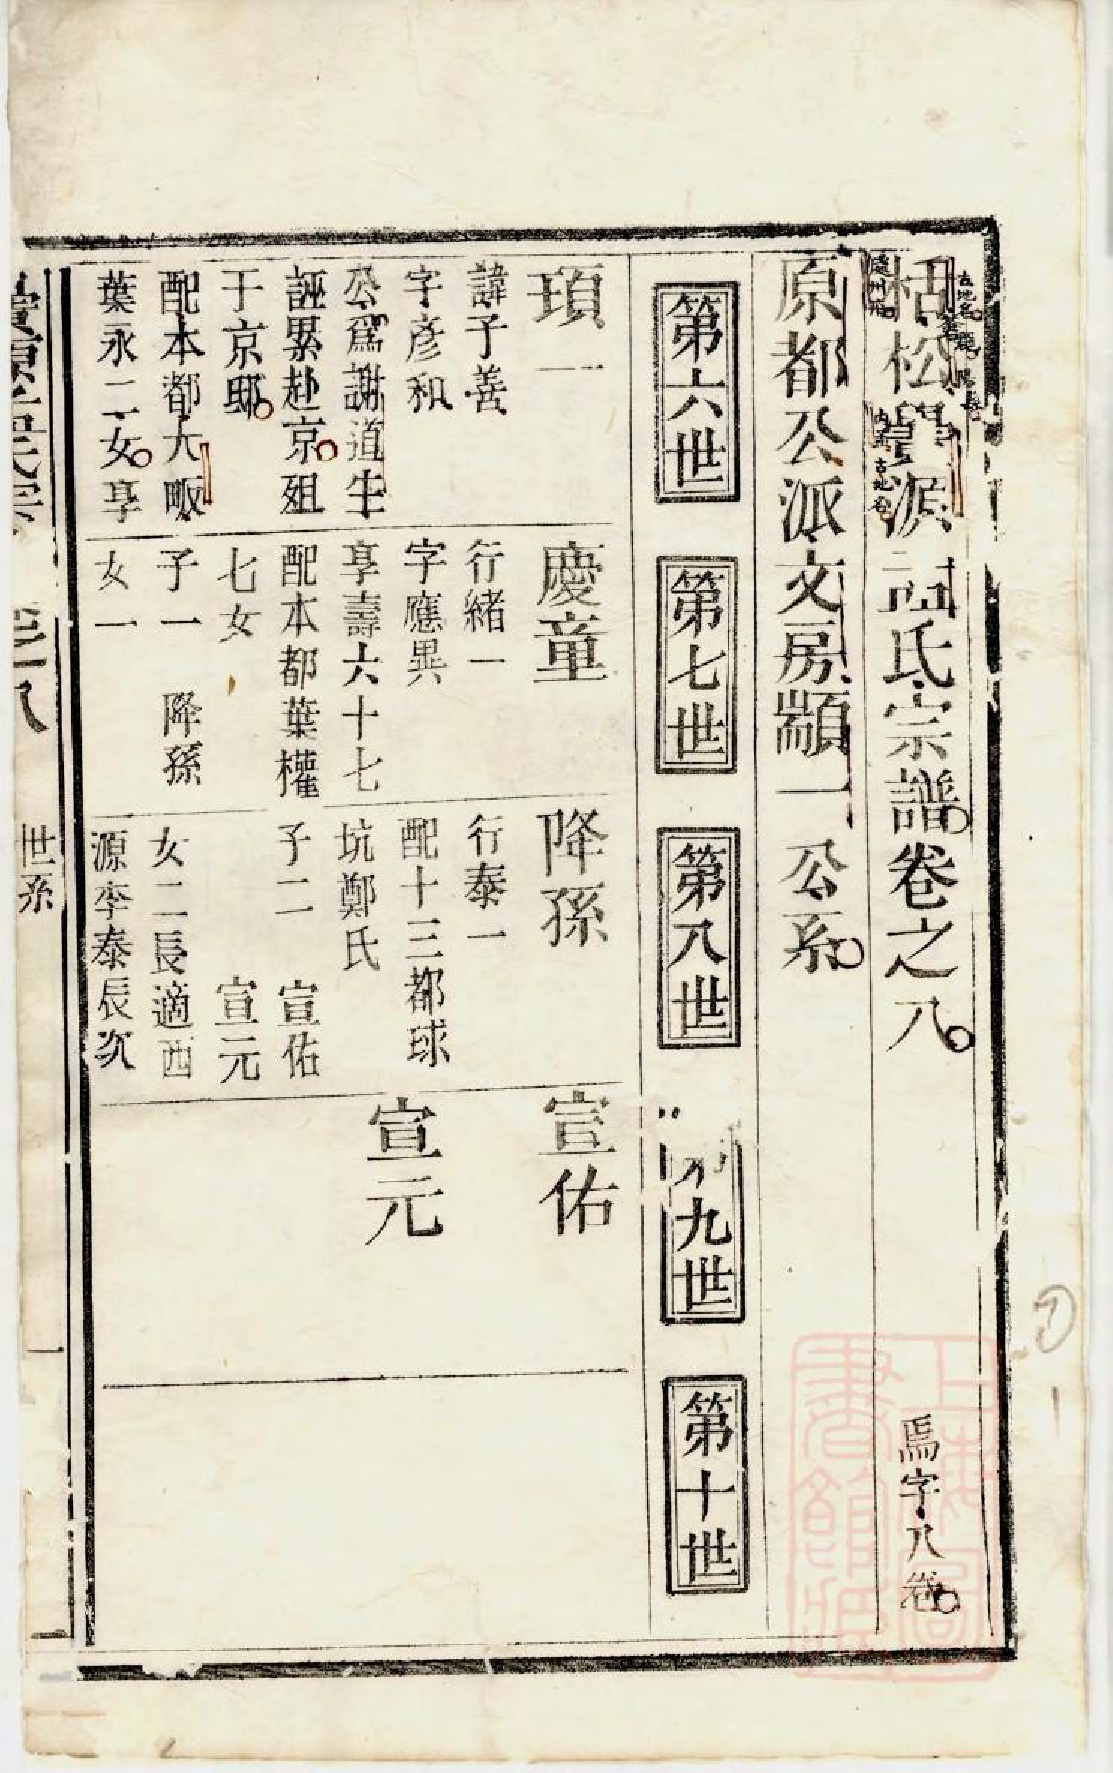 栝松豐源孟氏宗譜卷之八
焉字八卷
原都公派文房顓一公系
第六世
第七世
第八世
九世
第十世
頊一
諱子善
字彥和
公爲謝道生
誣累赴京殂
于京邸
配本都大畈
葉永二女享
慶童
行緒一
字應異
享壽六十七
配本都葉權
七女
子一 降孫
女一
降孫
行泰一
配十三都球
坑鄭氏
子二 宣佑
宣元
女二長適西
源李泰辰次
宣佑
宣元
世系
一